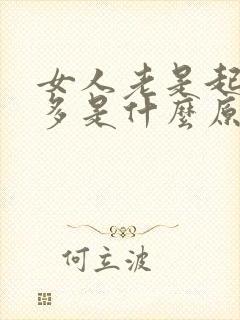 女人老是起
多是什麼原
何立波